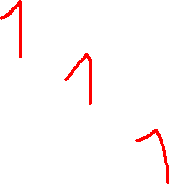 1
1
1